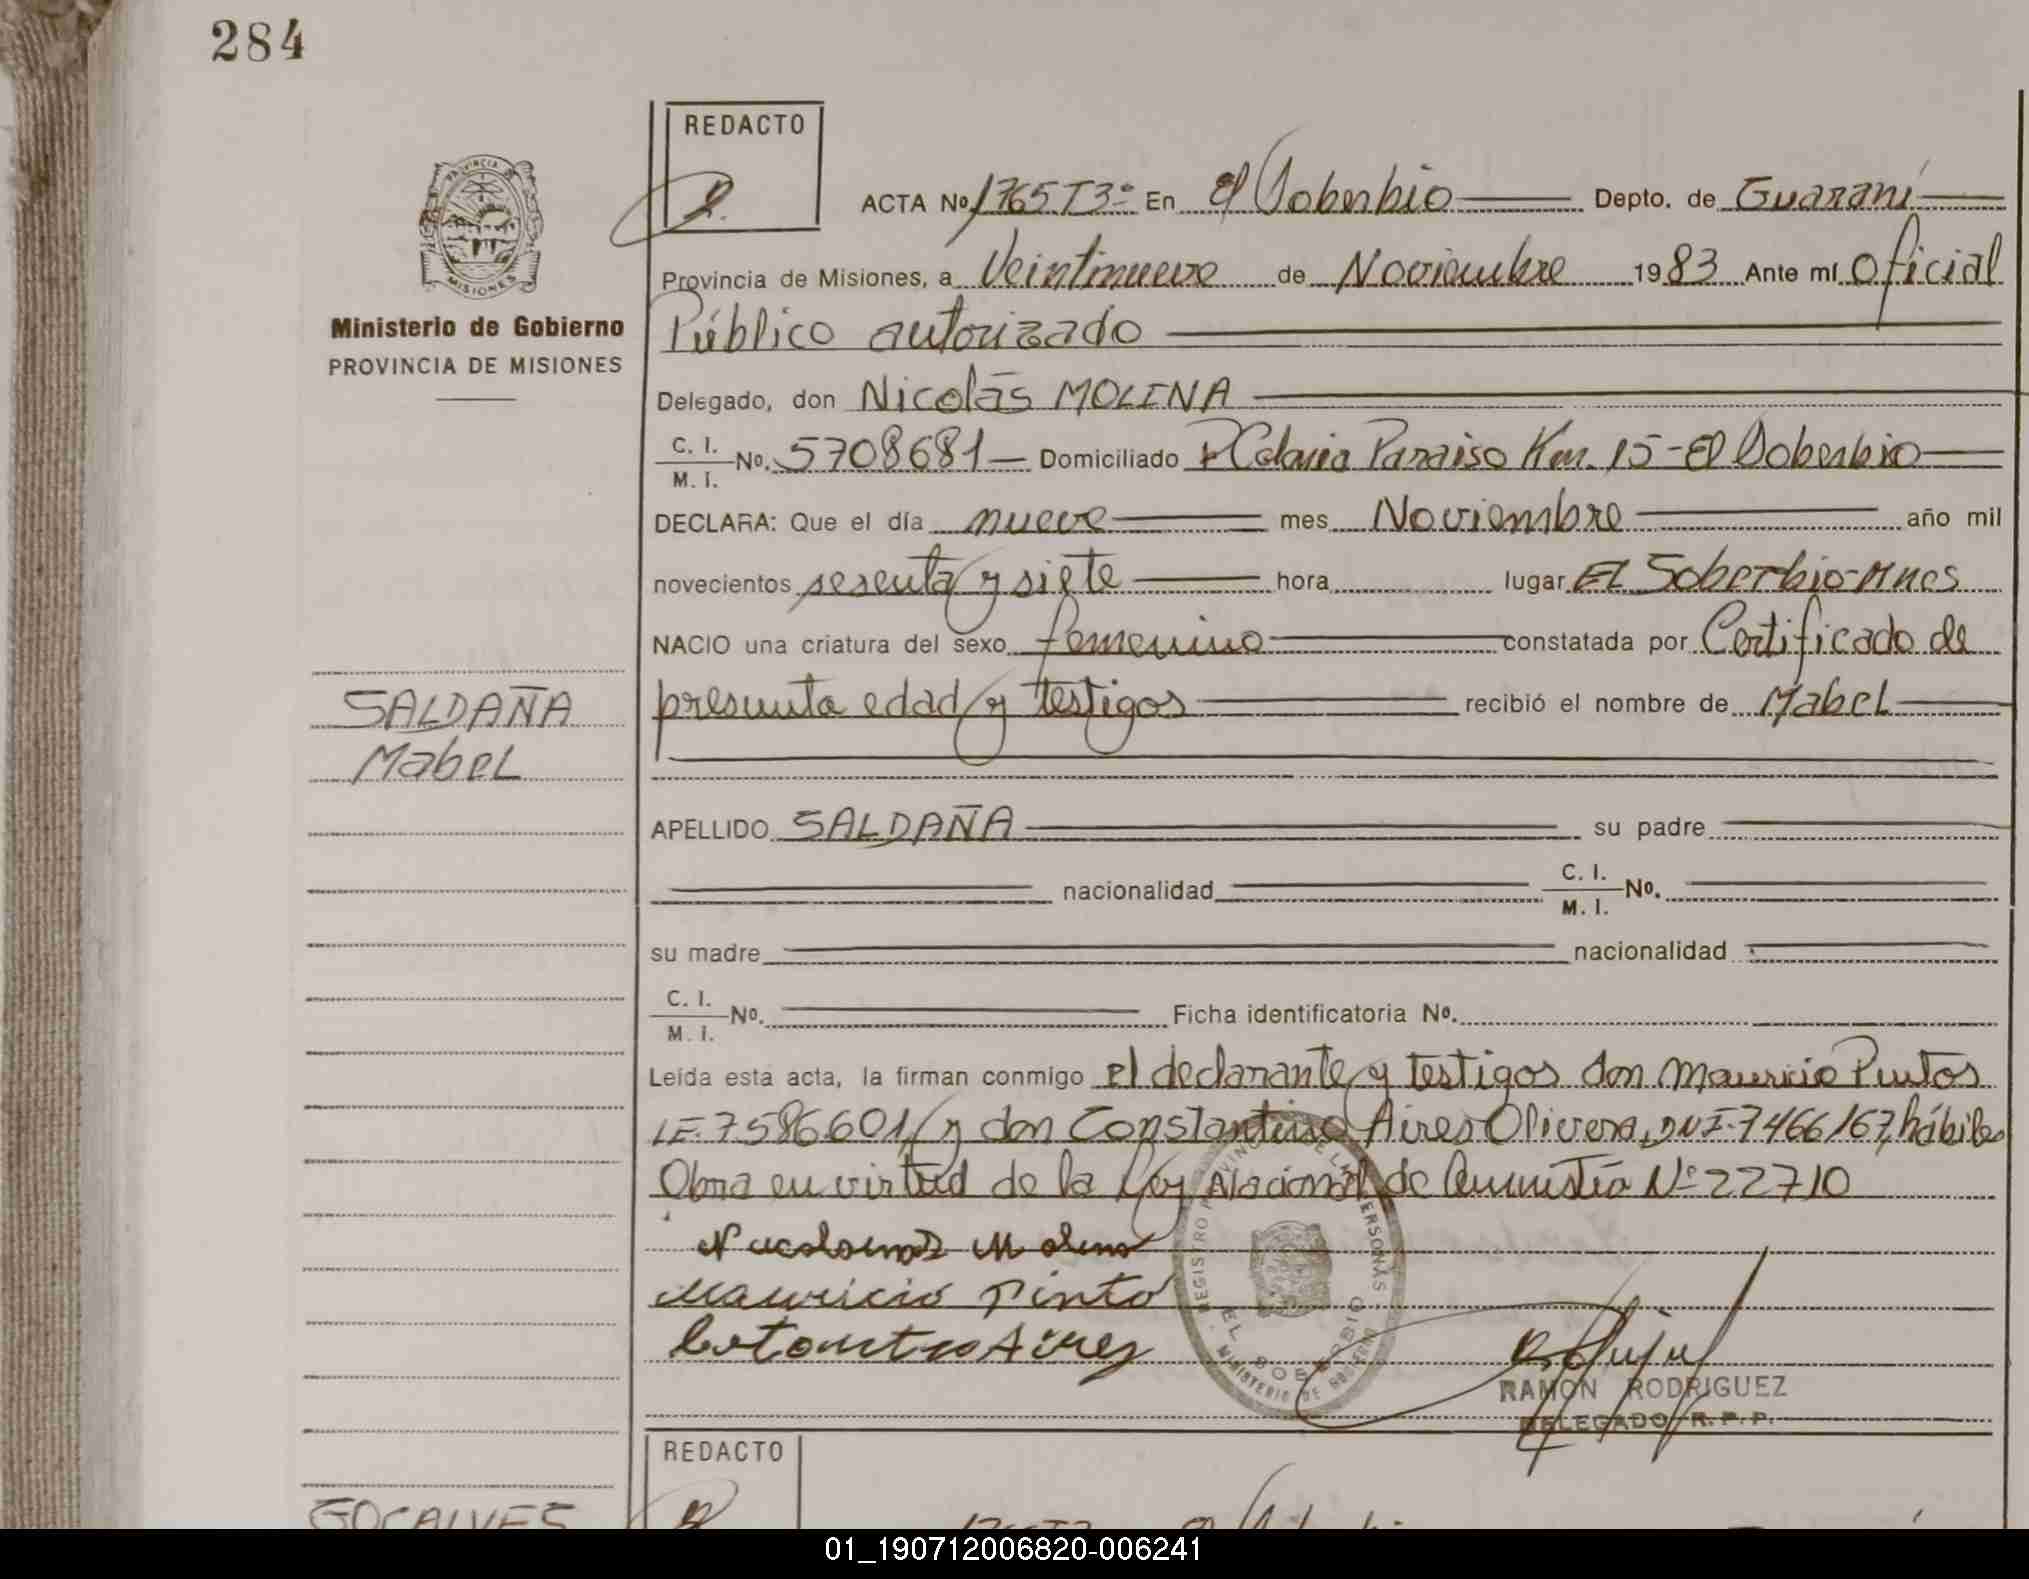 284
REDACTO
ACTA Nº 1765T3º En El Soberbio Depto. de Guaraní
Provincia de Misiones, a Veintinueve de Noviembre 1983 Ante mí Oficial
Público autorizado
Ministerio de Gobierno
PROVINCIA DE MISIONES
Delegado, don Nicolás MOLINA
C. I.
M. I. No. 5708681 Domiciliado Colonia Paraiso Km. 15-El Soberbio
DECLARA: Que el día nueve mes Noviembre año mil
novecientos sesenta y siete hora lugar EL Soberbio-Mnes
NACIO una criatura del sexo femenino constatada por Certificado de
presunta edad y testigos recibió el nombre de Mabel
SALDAÑA
Mabel
APELLIDO SALDAÑA su padre
nacionalidad C. I.
M. I. No.
su madre nacionalidad
C. I.
M. I. No. Ficha identificatoria No.
Leída esta acta, la firman conmigo el declarante y testigos don Mauricio Pintos
LE.7586601, y don Constantino Aires Olivera, DNI-7466167, hábiles
Obra en virtud de la Ley Nacional de Amnistía Nº 22710
Molina
Mauricio Pinto
Aires
REGISTRO PROVINCIAL DE LAS PERSONAS
EL SOBERBIO
MINISTERIO DE GOBIERNO
RAMON RODRIGUEZ
DELEGADO R.P.P.
REDACTO
GOCALVES
01_190712006820-006241